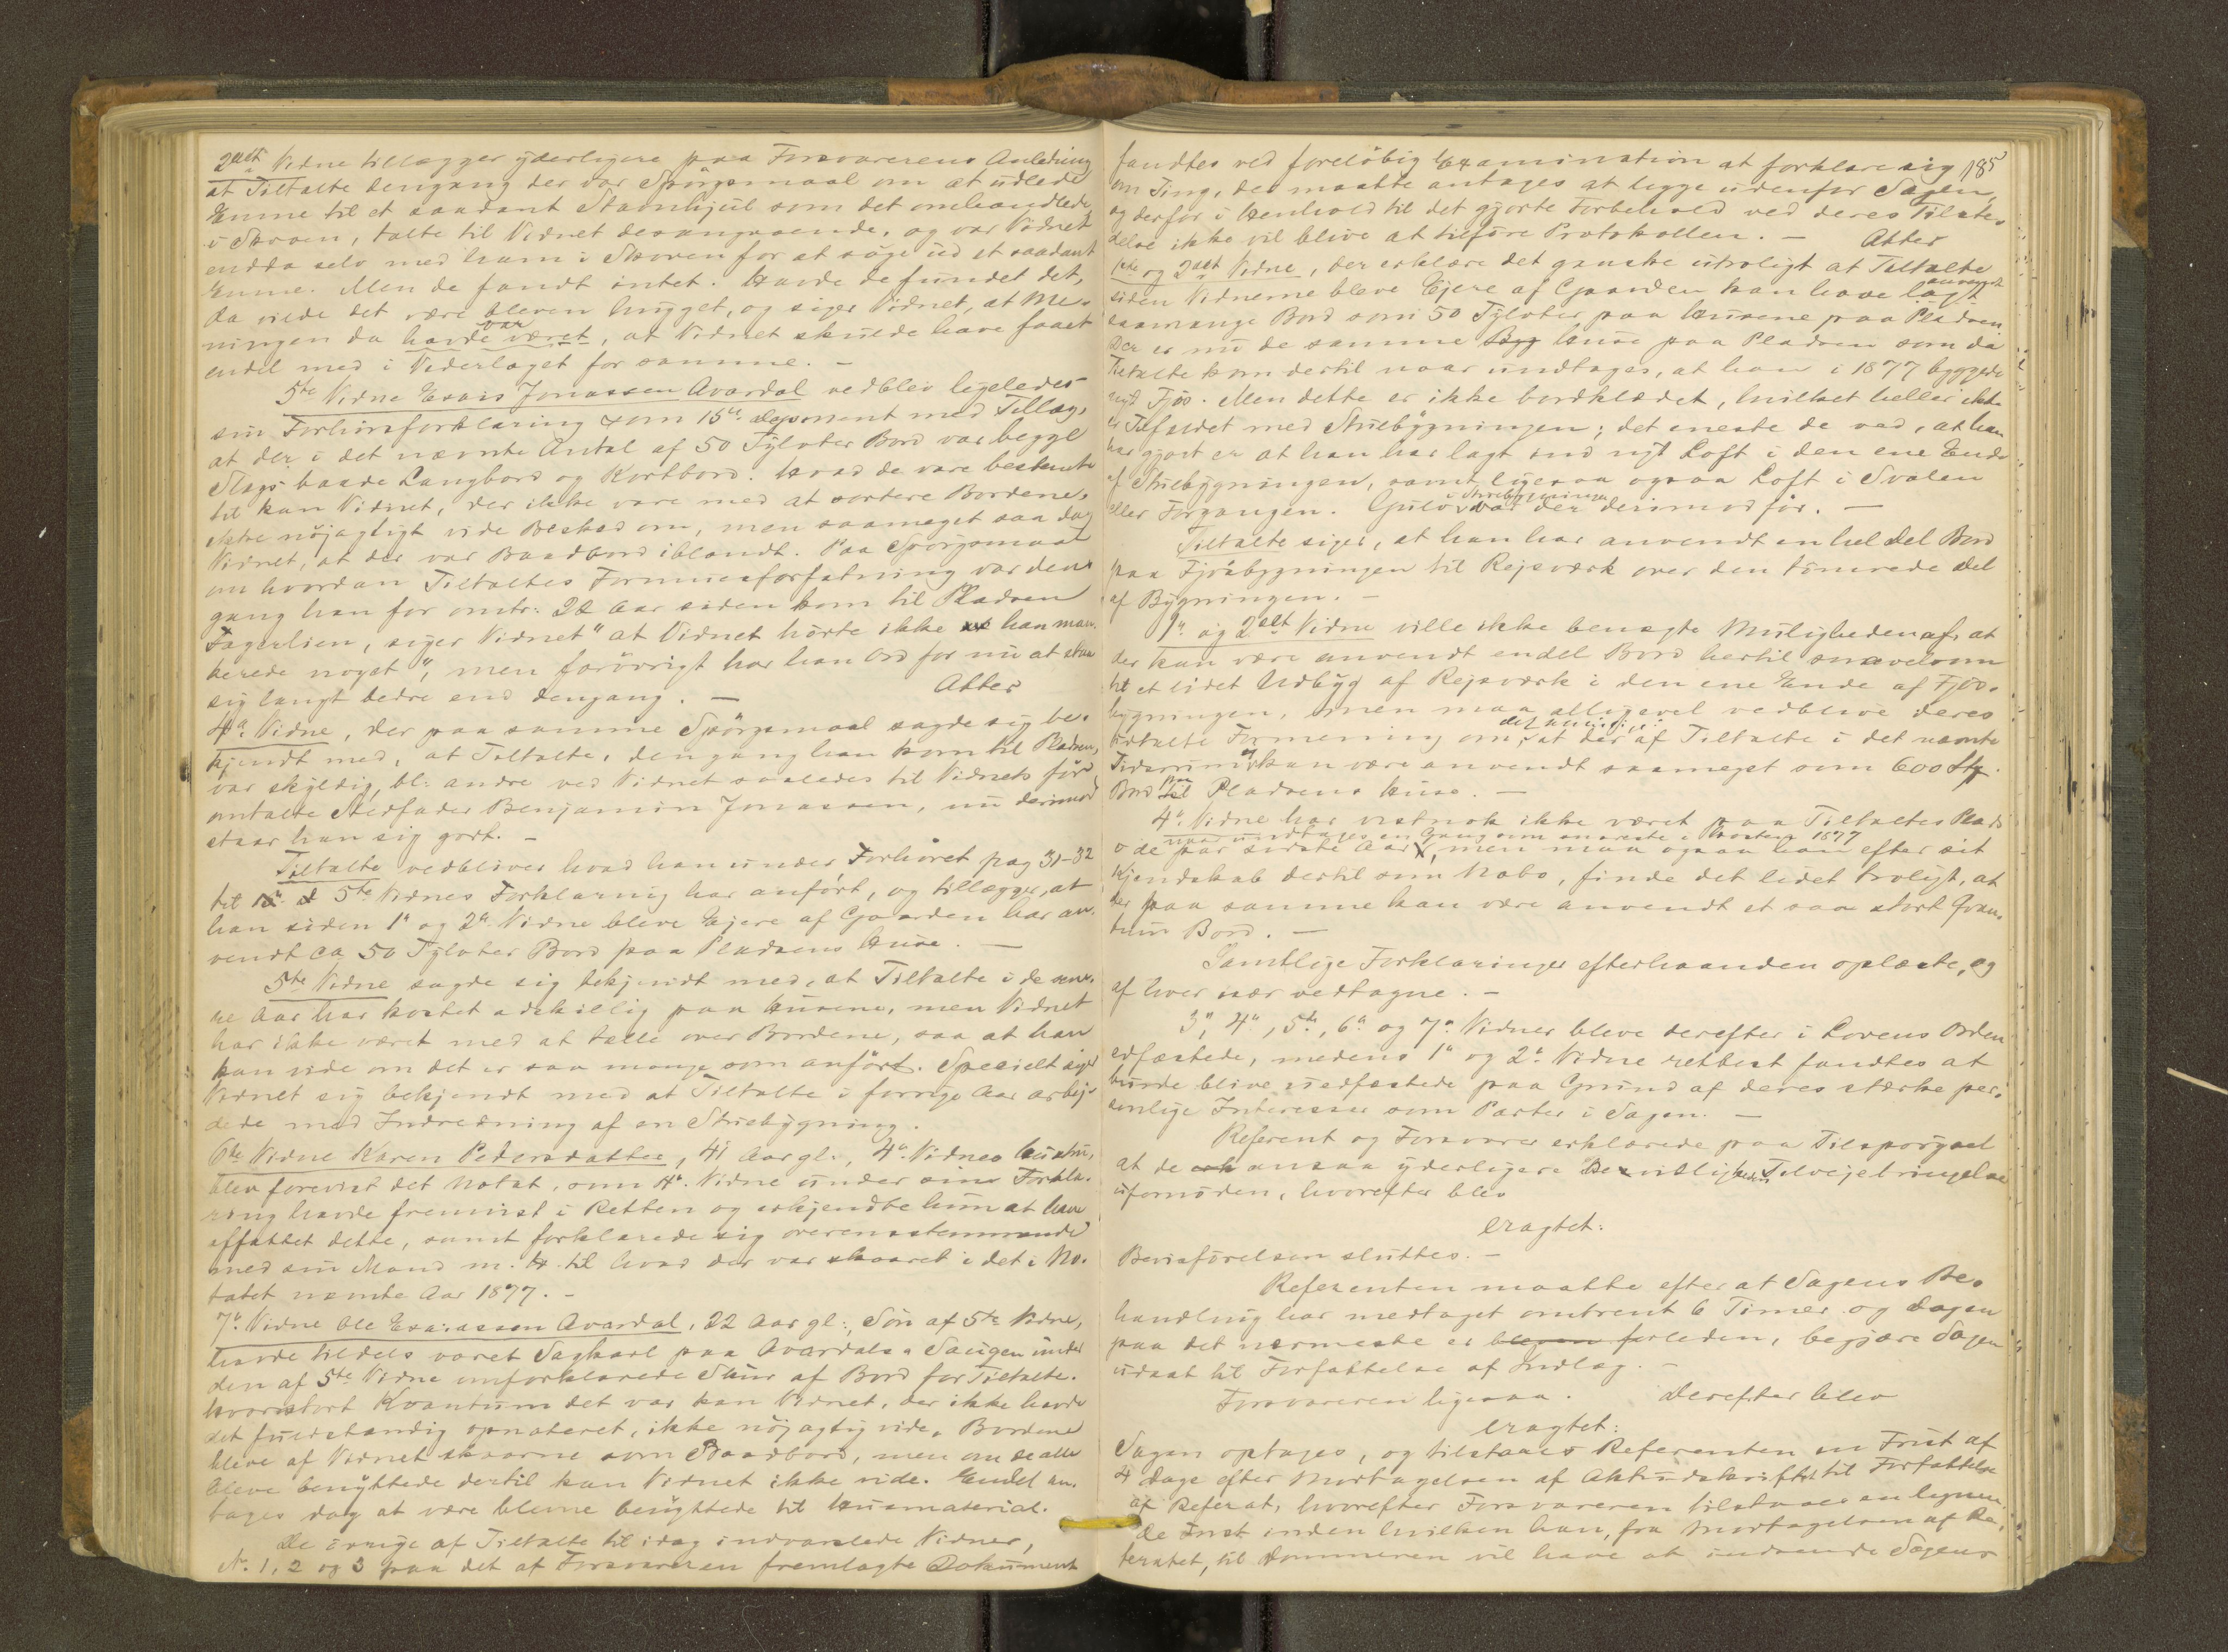 2det Vidne tillægger yderligere paa Forsvarerens Anledning
at Tiltalte dengang der var Spörgsmaal om at udlede
Emne til et saadant Stavnhjul som det omhandlede
i Skoven, talte til Vidnet desangaaende, og var Vidnet
endda selv med ham i Skoven for at söge ud et saadant
Emne. Men de fandt intet. Havde de fundet det,
da vilde det være bleven hugget, og siger Vidnet, at Me-
ningen da havde været var, at Vidnet skulde have faaet
endel med i Vederlaget for samme. -
5te Vidne Esais Jonassen Avardal vedblev ligeledes
sin Forhörsforklaring som 15de deponent med Tillæg,
at der i det nævnte Antal af 50 Tylvter Bord var begge
Slags baade Langbord og Kortbord. Hvad de vare bestemte
til kan Vidnet, der ikke vare med at sortere Bordene,
ikke nöjagtigt vide Besked om, men saameget saa dog
Vidnet, at der var Baadbord iblandt. Paa Spörgsmaal
om hvordan Tiltaltes Formuesforfatning var den-
gang han for omtr: 22 Aar siden kom til Pladsen
Fagerlien, siger Vidnet "at Vidnet hörte ikke at han man-
kerede noget", men forövrigt har han Ord for nu at staa
sig langt bedre end dengang. - Atter
4de Vidne, der paa samme Spörgsmaal sagde sig be-
kjendt med, at Tiltalte, dengang han kom til Pladsen,
var skyldig, bl: andre ved Vidnet saaledes til Vidnets för
omtalte Stedfader Benjamin Jonassen, nu derimod
staar han sig godt. -
Tiltalte vedbliver hvad han under Forhöret pag 31-32
til 5te Vidnes Forklaring har anfört, og tillægger, at
han siden 1ste og 2det Vidne bleve Ejere af Gaarden har an-
vendt ca 50 Tylvter Bord paa Pladsens Huse. -
5te Vidne sagde sig bekjendt med, at Tiltalte i de sene-
re Aar har kostet adskillig paa Husene, men Vidnet
har ikke været med at tælle over Bordene, saa at han
kan vide om det er saa mange som anfört. Specielt siger
Vidnet sig bekjendt med at Tiltalte i forrige Aar arbej-
dede med Indredning af en Stuebygning.
6te Vidne Karen Pedersdatter, 41 Aar gl:, 4de Vidnes Hustru,
blev forevist det Notat, som 4de Vidne under sin Forkla-
ring havde fremvist i Retten og erkjendte hun at have
affattet dette, samt forklarede sig overensstemmende
med sin Mand m. H. til hvad der var skaaret i det i No-
tatet nævnte Aar 1877. -
7de Vidne Ole Esaiassen Avardal, 22 Aar gl:, Sön af 5te Vidne,
havde tildels været Sagkarl paa Avardals Saugen under
den af 5te Vidne omforklarede Skur af Bord for Tiltalte.
Hvorstort Kvantum det var kan Vidnet, der ikke havde
det fuldstændig opnoteret, ikke nöjagtig vide. Bordene
bleve af Vidnet skaarne som Baadbord, men om de alle
bleve benyttede dertil kan Vidnet ikke vide. Endel an-
tages dog at være blevne benyttede til Husmaterial.
De övrige af Tiltalte til idag indvarslede Vidner,
No. 1, 2 og 3 paa det af Forsvareren fremlagte Dokument
185
fandtes ved forelöbig Examination at forklare sig
om Ting, der maatte antages at ligge udenfor Sagen,
og derfor i Henhold til det gjorte Forbehold ved deres Tilste-
delse ikke vil blive at tilföre Protokollen. - Atter
1ste og 2det Vidne, der erklære det ganske utroligt at Tiltalte
siden Vidnerne bleve Ejere af Gaarden kan have lagt anvendt
saamange Bord som 50 Tylvter paa Husene paa Pladsen.
Der er nu de samme Byg Huse paa Pladsen som da
Tiltalte kom dertil naar undtages, at han i 1877 byggede
nyt Fjös. Men dette er ikke bordklædet, hvilket heller ikke
er Tilfældet med Stuebygningen; det eneste de ved, at han
har gjort er at han har lagt ind nyt Loft i den ene Ende
af Stuebygningen, samt ligesaa ogsaa Loft i Svalen
eller Forgangen. Gulv i Stuebygningen var der derimod för. -
Tiltalte siger, at han har anvendt en hel del Bord
paa Fjösbygningen til Rejsværk over den tömrede del
af Bygningen. -
1ste og 2det Vidne ville ikke benægte Muligheden af, at
der kan være anvendt endel Bord hertil saavelsom
til et lidet Udbyg af Rejsværk i den ene Ende af Fjös-
bygningen, men maa alligevel vedblive deres
udtalte Formening om det urimelige i at der af Tiltalte i det nævnte
Tidsrum kan være anvendt saameget som 600 Stk
Bord til paa Pladsens Huse. -
4de Vidne har vistnok ikke været paa Tiltaltes Plads
naar undtages en Gang som snareste i Hösten 1877
i de par sidste Aar, men maa ogsaa han efter sit
Kjendskab dertil som Nabo, finde det lidet troligt, at
der paa samme kan være anvendt et saa stort Qvan-
tum Bord. -
Samtlige Forklaringer efterhaanden oplæste, og
af hver især vedtagne. -
3die, 4de, 5te, 6te og 7de Vidner bleve derefter i Lovens Orden
edfæstede, medens 1ste og 2det Vidne rettest fandtes at
burde blive uedfæstede paa Grund af deres stærke per-
sonlige Interesser som Parter i Sagen. -
Referent og Forsvarer erklærede paa Tilspörgsel
at de ansaa yderligere Bevisligheders Tilvejebringelse
ufornöden, hvorefter blev
eragtet:
Bevisförelsen sluttes. -
Referenten maatte efter at Sagens Be-
handling har medtaget omtrent 6 Timer og Dagen
paa det nærmeste er bleven forleden, begjære Sagen
udsat til Forfattelse af Indlæg. -
Forsvareren ligesaa. Derefter blev
eragtet:
Sagen optages, og tilstaaes Referenten en Frist af
4 Dage efter Modtagelsen af Aktudskriftet til Forfattelse
af Referat, hvorefter Forsvareren tilstaaes en lignen-
de Frist inden hvilken han, fra Modtagelsen af Re-
feratet, til Dommeren vil have at indsende Sagens